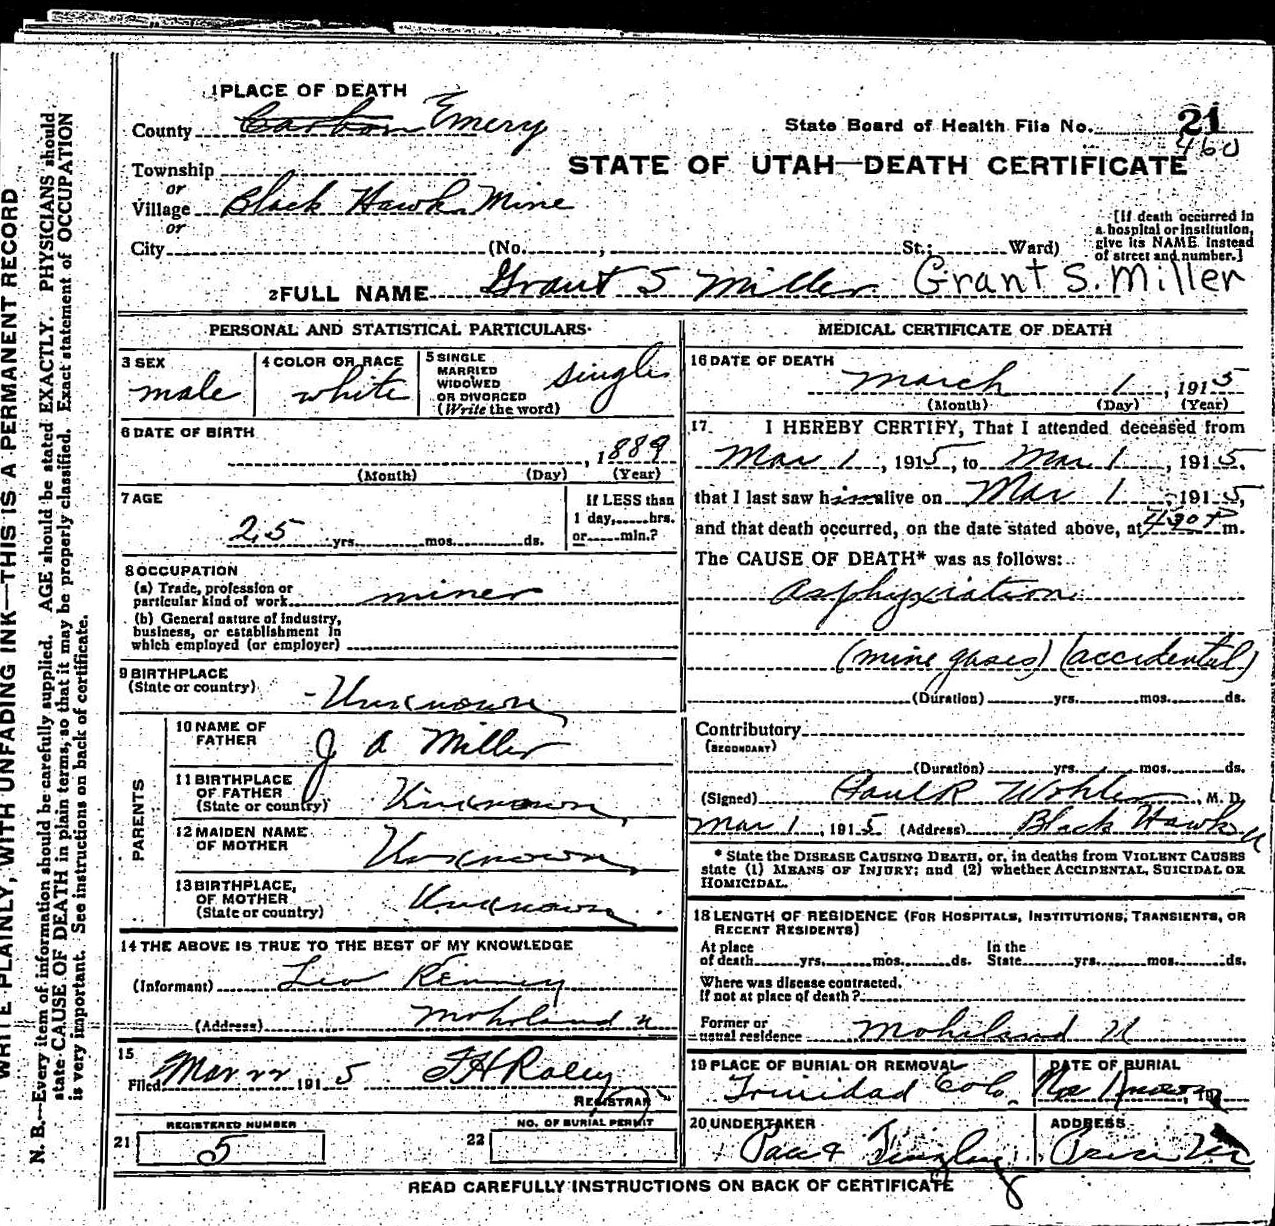 1 PLACE OF DEATH
County Carbon Emery
State Board of Health File No. 21
460
Township
STATE OF UTAH—DEATH CERTIFICATE
or
Village Black Hawk Mine
or
City (No. , St.; Ward)
[If death occurred in
a hospital or institution,
give its NAME instead
of street and number.]
2 FULL NAME Grant S Miller Grant S. Miller
PERSONAL AND STATISTICAL PARTICULARS
3 SEX
male
4 COLOR OR RACE
white
5 SINGLE
MARRIED
WIDOWED
OR DIVORCED
(Write the word)
single
6 DATE OF BIRTH
, 1889
(Month) (Day) (Year)
7 AGE
25 yrs. mos. ds.
If LESS than
1 day, hrs.
or min.?
8 OCCUPATION
(a) Trade, profession or
particular kind of work miner
(b) General nature of industry,
business, or establishment in
which employed (or employer)
9 BIRTHPLACE
(State or country)
Unknown
PARENTS
10 NAME OF
FATHER
J A Miller
11 BIRTHPLACE
OF FATHER
(State or country)
Unknown
12 MAIDEN NAME
OF MOTHER
Unknown
13 BIRTHPLACE,
OF MOTHER
(State or country)
Unknown
14 THE ABOVE IS TRUE TO THE BEST OF MY KNOWLEDGE
(Informant) Leo Kenney
(Address) Mohrland U
15
Filed Mar 22 1915
REGISTRAR
REGISTERED NUMBER
21 5
NO. OF BURIAL PERMIT
22
MEDICAL CERTIFICATE OF DEATH
16 DATE OF DEATH
March 1, 1915
(Month) (Day) (Year)
17. I HEREBY CERTIFY, That I attended deceased from
Mar 1, 1915, to Mar 1, 1915,
that I last saw him alive on Mar 1, 1915,
and that death occurred, on the date stated above, at 430 P m.
The CAUSE OF DEATH* was as follows:
Asphyxiation
(mine gases) (accidental)
(Duration) yrs. mos. ds.
Contributory
(SECONDARY)
(Duration) yrs. mos. ds.
(Signed) Paul R Wohler, M. D.
Mar 1, 1915 (Address) Black Hawk U
* State the DISEASE CAUSING DEATH, or, in deaths from VIOLENT CAUSES
state (1) MEANS OF INJURY; and (2) whether ACCIDENTAL, SUICIDAL OR
HOMICIDAL.
18 LENGTH OF RESIDENCE (FOR HOSPITALS, INSTITUTIONS, TRANSIENTS, OR
RECENT RESIDENTS)
At place
of death yrs. mos. ds.
In the
State yrs. mos. ds.
Where was disease contracted,
if not at place of death?
Former or
usual residence Mohrland U
19 PLACE OF BURIAL OR REMOVAL
Trinidad Colo.
DATE OF BURIAL
20 UNDERTAKER
Pace & Tingley
ADDRESS
Price
READ CAREFULLY INSTRUCTIONS ON BACK OF CERTIFICATE
WRITE PLAINLY, WITH UNFADING INK—THIS IS A PERMANENT RECORD
N. B.—Every item of information should be carefully supplied. AGE should be stated EXACTLY. PHYSICIANS should
state CAUSE OF DEATH in plain terms, so that it may be properly classified. Exact statement of OCCUPATION
is very important. See instructions on back of certificate.